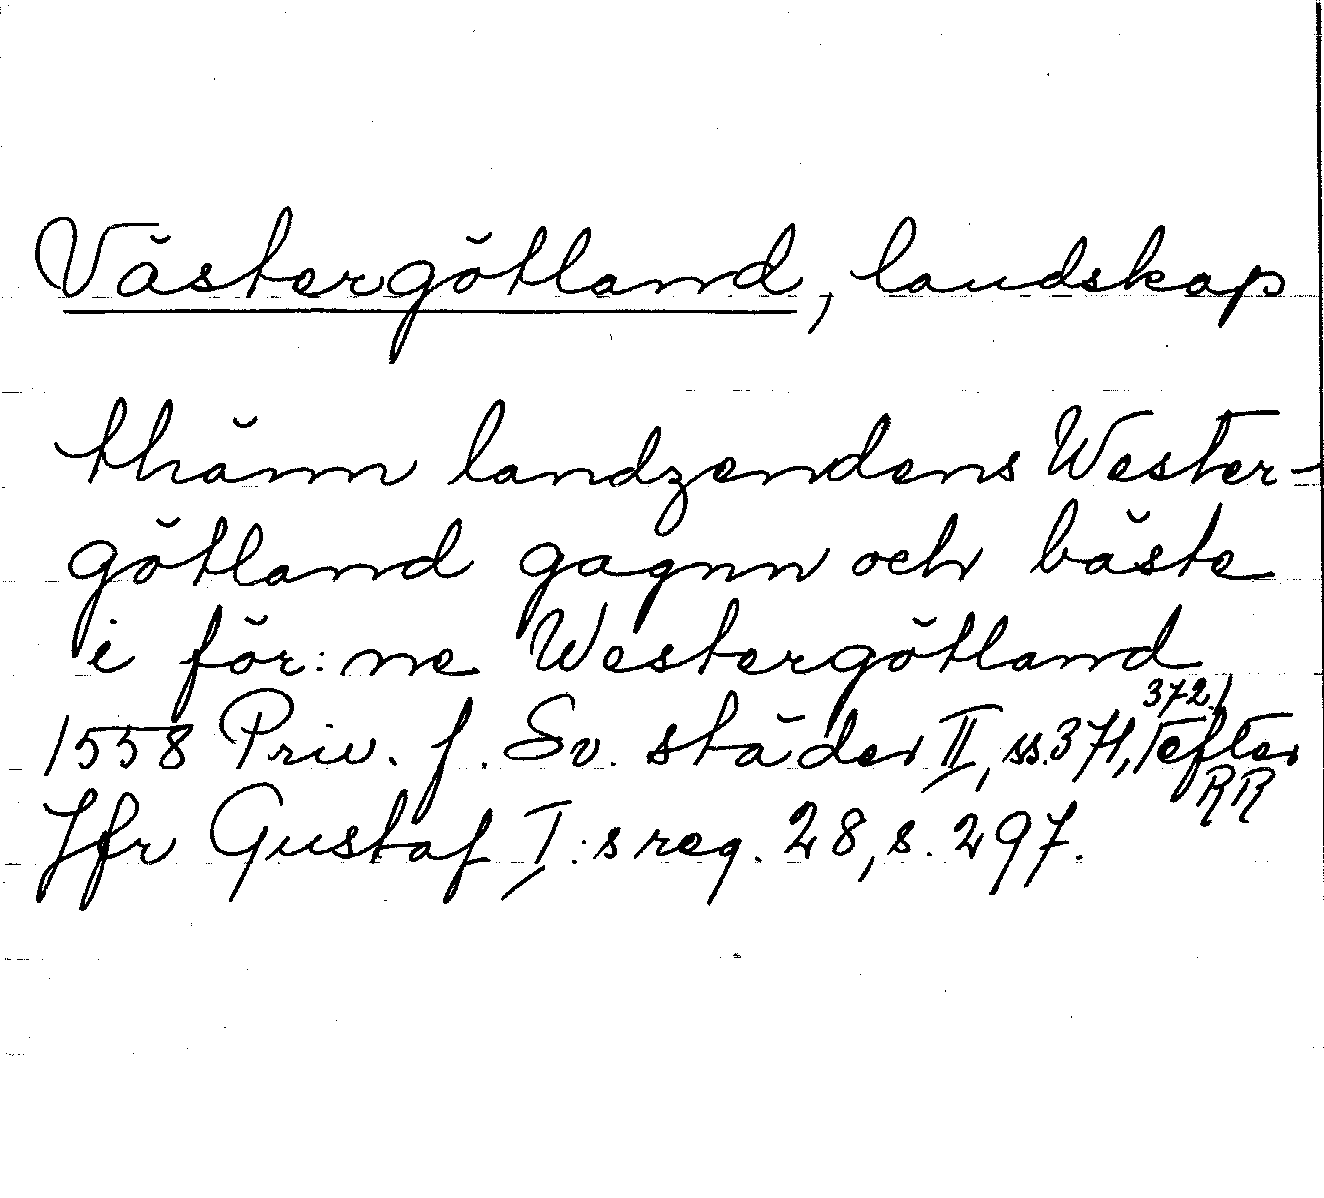 Västergötland, landskap
thänn landzendens Wester-
götland gagnn och bäste
i för:ne Westergötland
1558 Priv. f. Sv. städer II, ss. 371, 372. efter RR
Jfr Gustaf I:s reg. 28, s. 297.